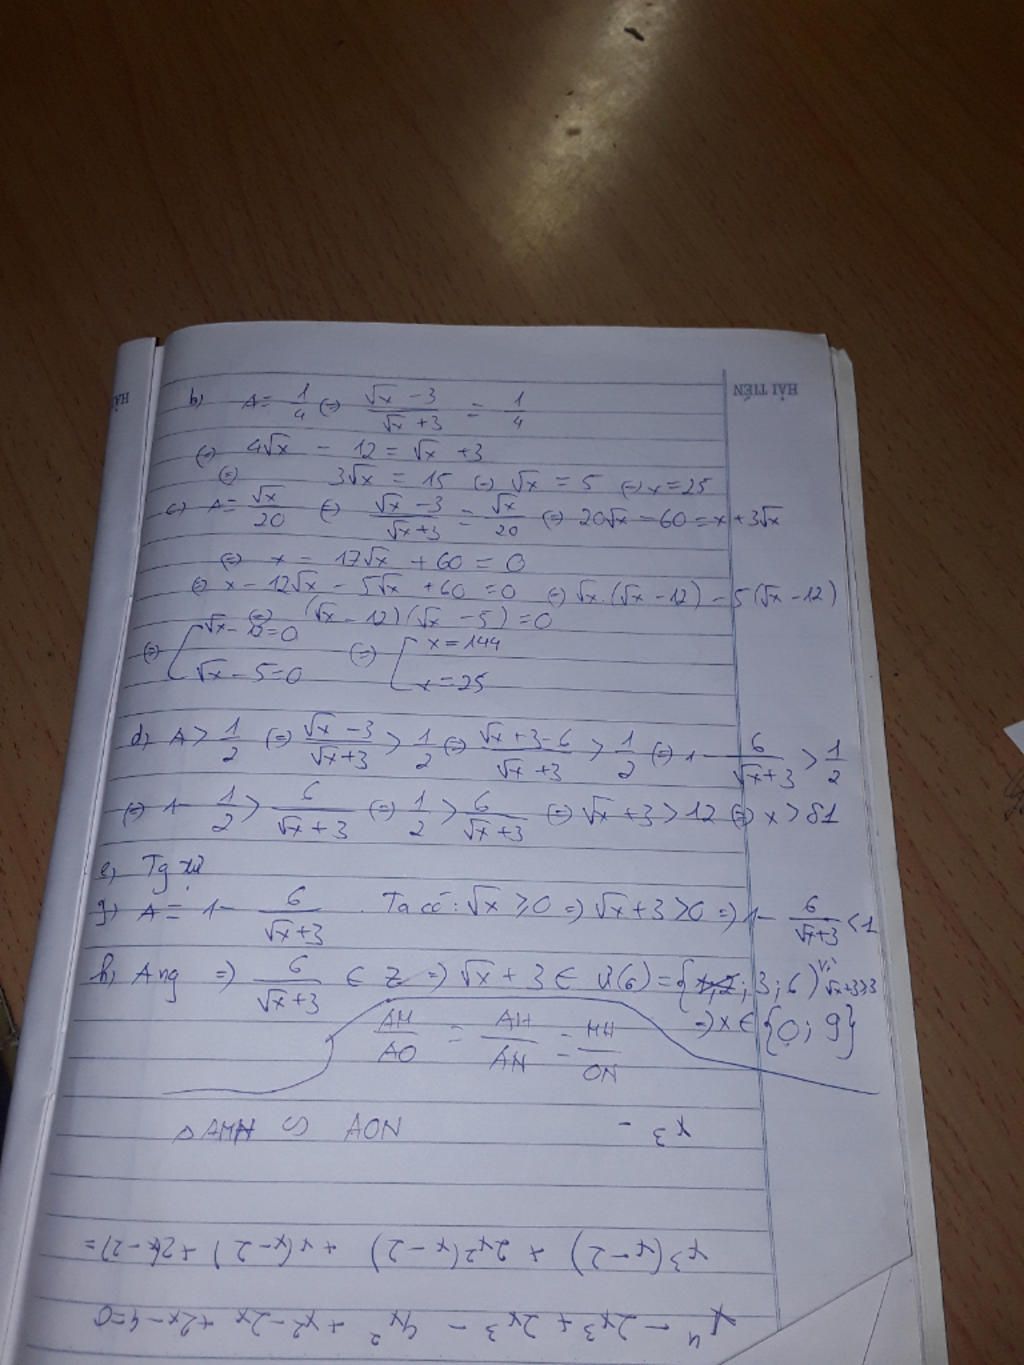 HẢI TIẾN
b) A = 1/4 (=) (√x - 3)/(√x + 3) = 1/4
(=) 4√x - 12 = √x + 3
(=) 3√x = 15 (=) √x = 5 (=) x = 25
c) A = √x/20 (=) (√x - 3)/(√x + 3) = √x/20 (=) 20√x - 60 = x + 3√x
(=) x = 17√x + 60 = 0
(=) x - 12√x - 5√x + 60 = 0 (=) √x.(√x - 12) - 5(√x - 12)
(=) (√x - 12)(√x - 5) = 0
(=) [ √x - 12 = 0 (=) [ x = 144
√x - 5 = 0 x = 25
d) A > 1/2 (=) (√x - 3)/(√x + 3) > 1/2 (=) (√x + 3 - 6)/(√x + 3) > 1/2 (=) 1 - 6/(√x + 3) > 1/2
(=) 1 - 1/2 > 6/(√x + 3) (=) 1/2 > 6/(√x + 3) (=) √x + 3 > 12 (=) x > 81
e) Tg tự
g) A = 1 - 6/(√x + 3) . Ta có: √x ⩾ 0 => √x + 3 > 0 => 1 - 6/(√x + 3) < 1
h) Ang => 6/(√x + 3) ∈ Z => √x + 3 ∈ Ư(6) = {1; 2; 3; 6} vì √x + 3 ⩾ 3
=> x ∈ {0; 9}
AM/AO = AH/AN = MH/ON
△ AMH ∽ AON
x³ -
x³(x - 2) + 2x²(x - 2) + x(x - 2) + 2(x - 2) =
x⁴ - 2x³ + 2x³ - 4x² + x² - 2x + 2x - 4 = 0